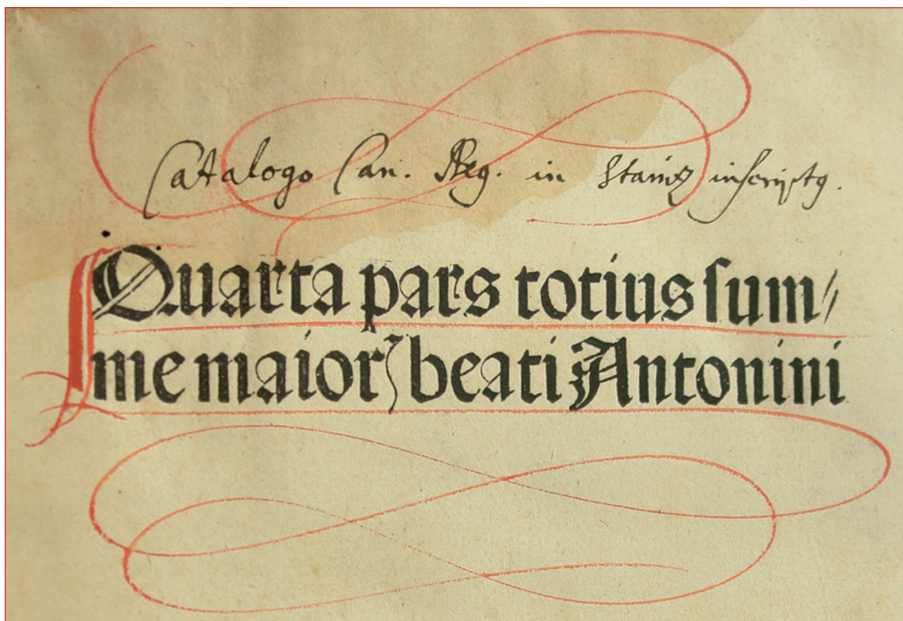 Catalogo Can. Reg. in Stainz inscriptꝰ.
Quarta pars totius ſum⸗
me maiorꝭ beati Antonini